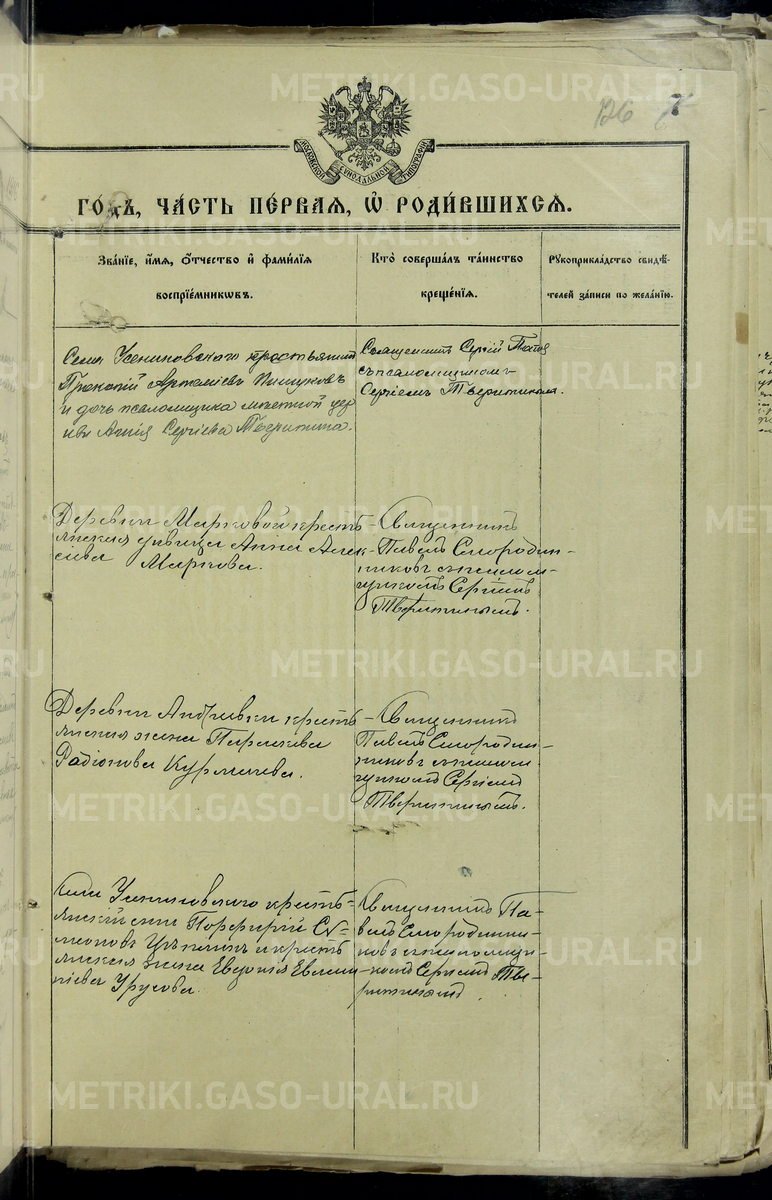 METRIKI.GASO-URAL.RU
126
МОСКОВСКОЙ СѴНОДАЛЬНОЙ ТИПОГРАФІИ
ГО́ДЪ, ЧА́СТЬ ПЕ́РВАЯ, Ѡ҆ РОДИ́ВШИХСЯ.
Зва́нїе, и҆́мя, ѻ҆́тчество и҆ фами́лїя
воспрїе́мникѡвъ.
Кто̀ соверша́лъ та́инство
креще́нїя.
Рꙋкоприкла́дство свидѣ́-
телей за́писи по жела́нїю.
Села Усениновскаго крестьянинъ
Прокопій Артеміевъ
и дочь псаломщика мѣстной цер
кви Сергіева Тверитина.
Священникъ Сергій
съ псаломщикомъ
Сергіемъ Тверитинымъ.
Деревни Марковой кресть-
янская дѣвица Анна Алек-
сіева Маркова.
Священникъ
Павелъ Смородин-
никовъ съ псалом-
щикомъ Сергіемъ
Тверитинымъ.
METRIKI.GASO-URAL.RU
Деревни кресть-
янская жена Параскева
Радіонова Курмачева.
Священникъ
Павелъ Смородин-
никовъ съ псалом-
щикомъ Сергіемъ
Тверитинымъ.
METRIKI.GASO-URAL.RU
Села Усениновскаго кресть-
янскій сынъ Порфирій Си-
меоновъ и кресть
янская жена Евдокія Евлам
піева Урусова.
Священникъ Па-
велъ Смородинни-
ковъ съ псаломщи-
комъ Сергіемъ Тве-
ритинымъ.
METRIKI.GASO-URAL.RU
METRIKI.GASO-URAL.RU